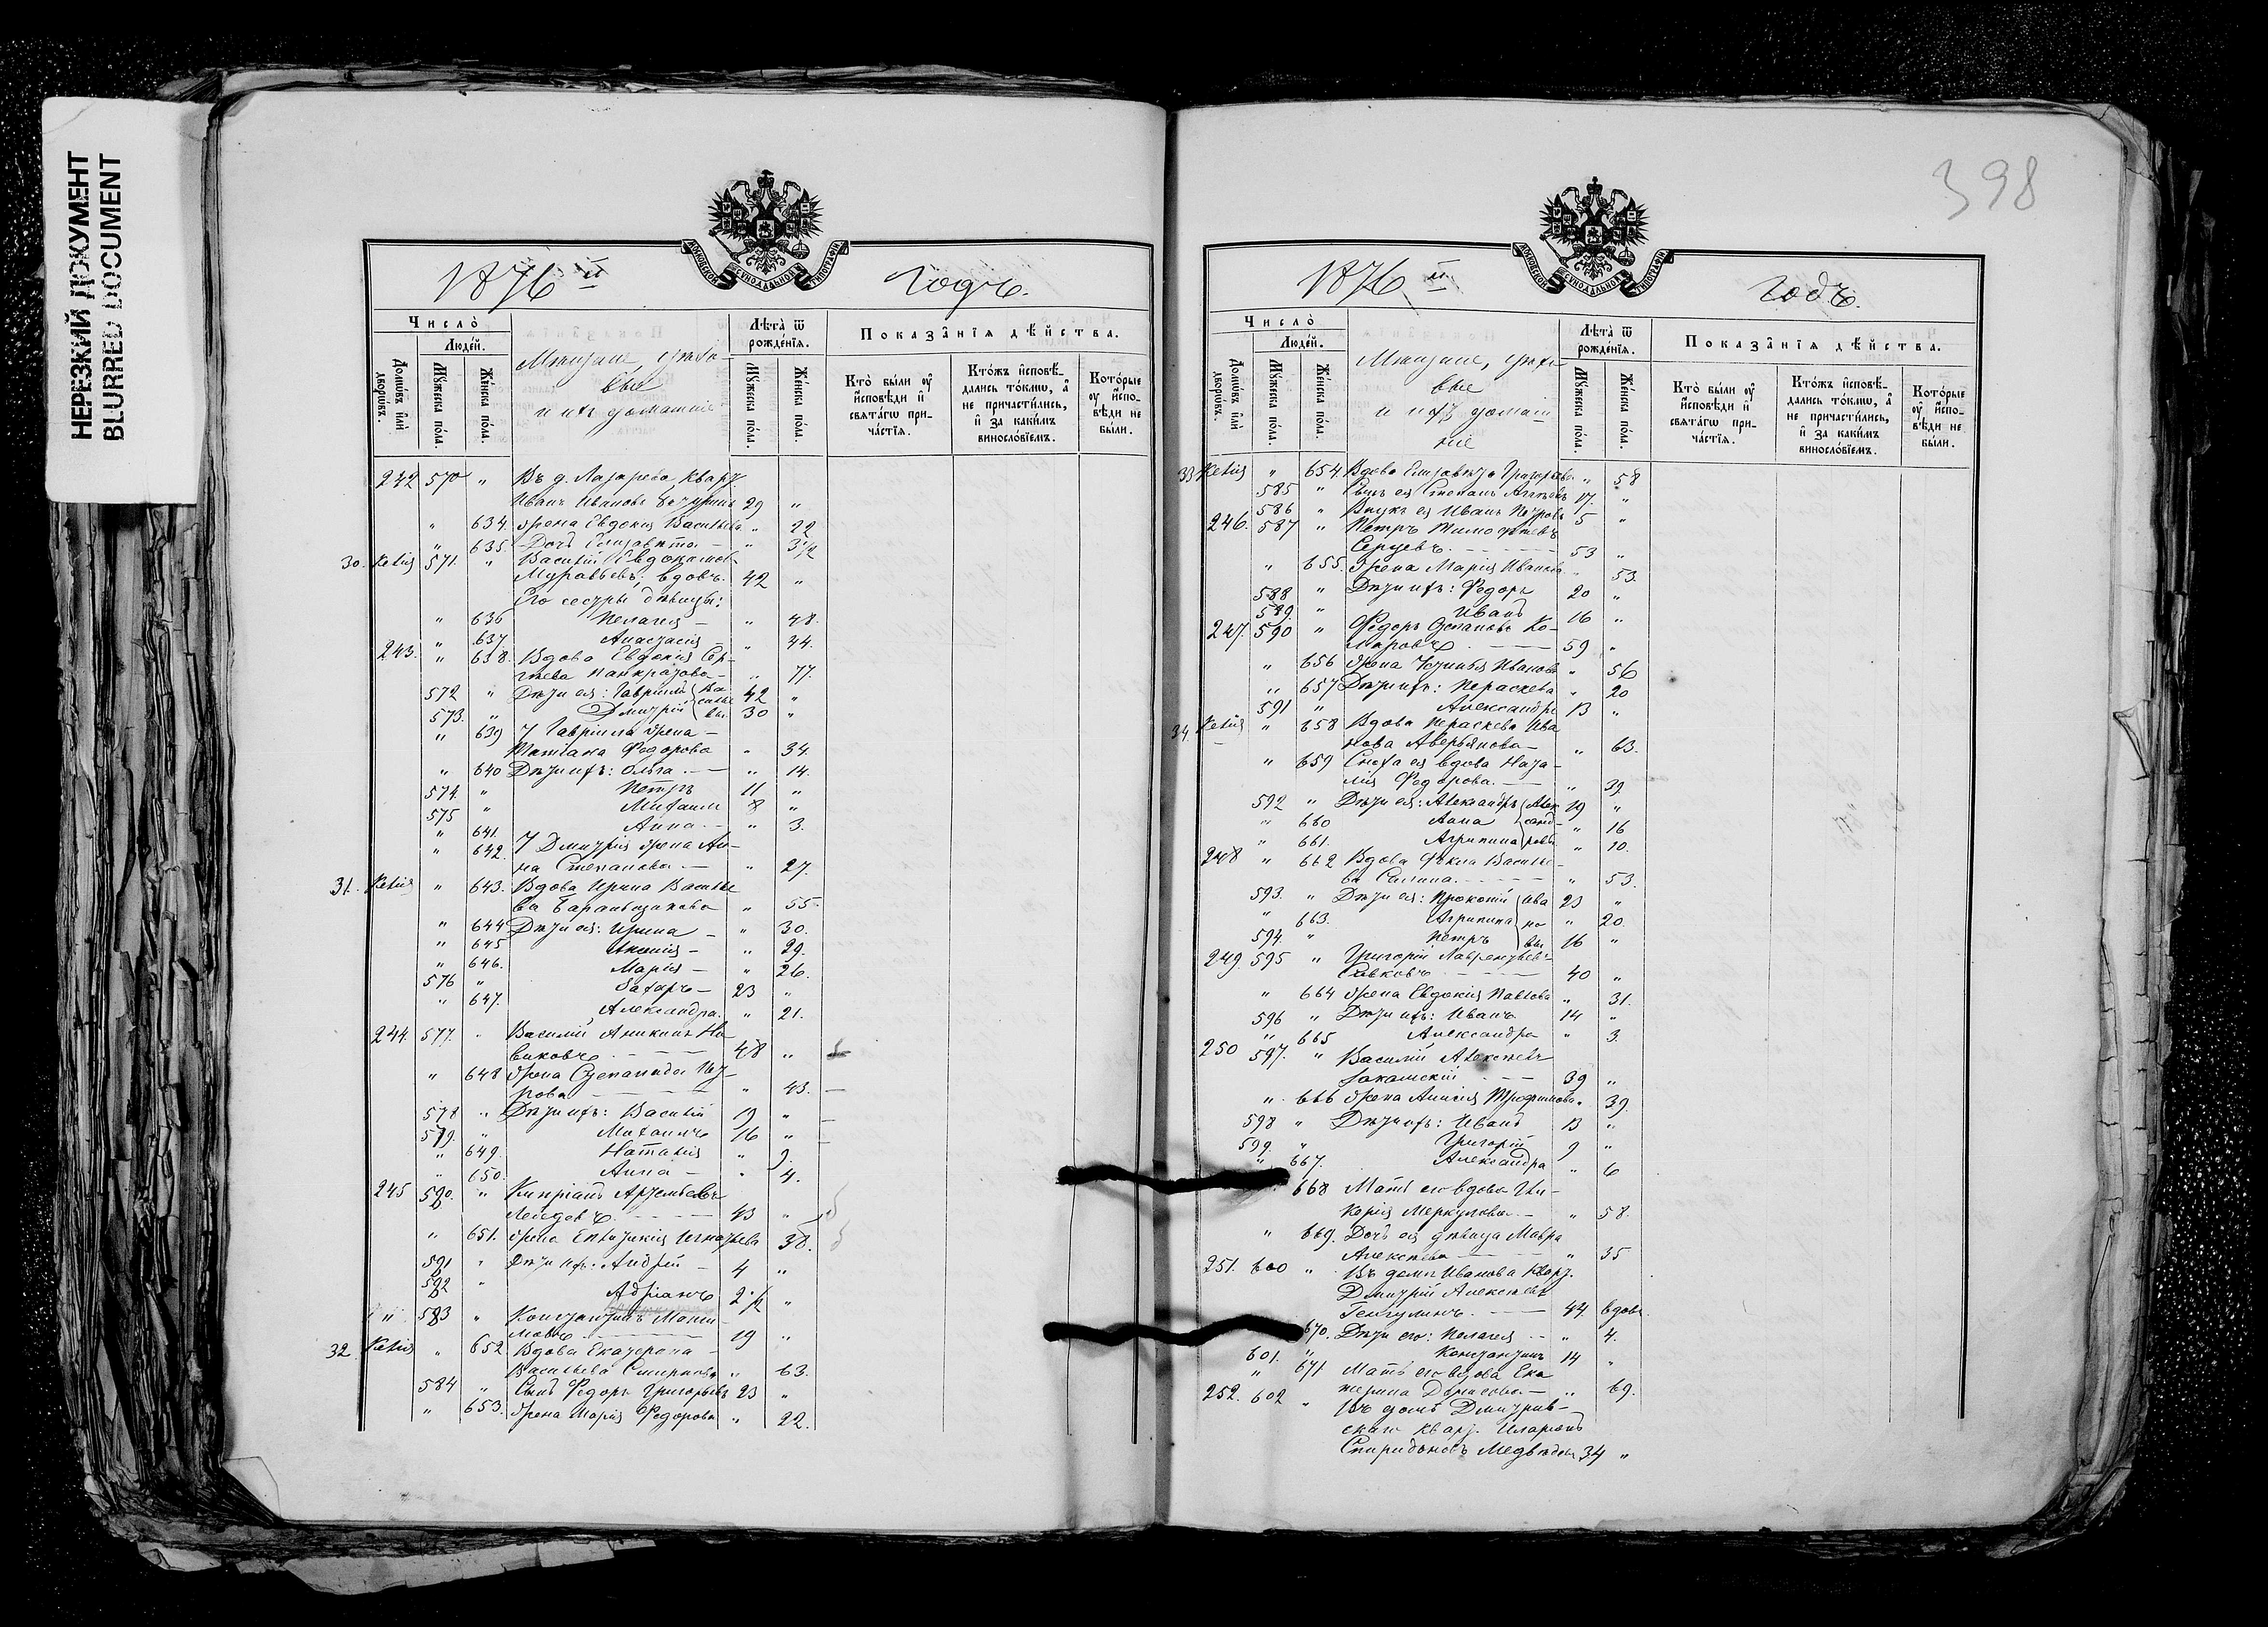 НЕРЕЗКИЙ ДОКУМЕНТ
BLURRED DOCUMENT
МОСКОВСКОЙ СѴНОДАЛЬНОЙ ТИПОГРАФІИ
1876й Годъ.
Число̀
Люде́й.
Домо́въ и҆лѝ дворо́въ.
Мꙋ́жеска по́ла.
Же́нска по́ла.
Мѣщане, цехо-
вые
и ихъ домашніе
Лѣта̀ ѿ рожде́нїѧ.
Мꙋ́жеска по́ла.
Же́нска по́ла.
Показа̑нїѧ дѣ́йства.
Кто̀ бы́ли оу҆ и҆́сповѣди и҆ свѧта́гѡ при-
ча́стїѧ.
Кто́жъ и҆сповѣ́-
дались то́кмѡ, а҆ не причасти́лись, и҆ за каки́мъ виносло́вїемъ.
Кото́рые оу҆ и҆́спо-
вѣди не бы́ли.
242 570 " Въ д. Лазарева, кварт.
Иванъ Ивановъ 29 "
" 634. Жена Евдокія Васильева " 22
" 635. Дочь Елизавета — " 3 1/2
30. Келія 571. " Василій Евдокимов
Муравьевъ, вдовъ. 42 "
Его сестры дѣвицы:
" 636 Пелагея — " 48.
" 637 Анастасія — " 44.
243. " 638. Вдова Евдокія Сер-
гѣева Панкратова — " 77.
572 " Дѣти ея: Гавріилъ Ва- 42 "
573. " Дмитрій силье вы. 30 "
" 639 У Гавріила жена —
Татіана Федорова " 34.
" 640 Дѣти ихъ: Ольга — " 14.
574. " Петръ 11 "
575 " Михаилъ 8 "
" 641. Анна — " 3.
" 642. У Дмитрія жена Ан-
на Степанова — " 27.
31. Келія " 643. Вдова Ирина Василье
ва " 55.
" 644 Дѣти ея: Ирина — " 30.
" 645 — " 29.
" 646. Марія — " 26.
576 " Захаръ — 23 "
" 647. Александра. " 21.
244. 577. " Василій Аникинъ Но
виковъ — 48 "
" 648 Жена Степанида Пет-
рова — " 43.
578 " Дѣти ихъ: Василій 19 "
579. " Михаилъ 16 "
" 649. Наталія " 9.
" 650. Анна — " 4.
245 580. " Кипріанъ Артемьевъ
43 "
" 651. Жена Игнатьева 38.
581 " Дѣти ихъ: Андрей — 4 "
582 " Адріанъ 2 1/2 "
" 583 " Константинъ
19 "
32. Келія " 652. Вдова Екатерина —
Васильева Смирнова " 63.
584 " Сынъ Федоръ Григорьевъ 23 "
" 653. Жена Марія Федорова " 22.
398
МОСКОВСКОЙ СѴНОДАЛЬНОЙ ТИПОГРАФІИ
1876й Годъ.
Число̀
Люде́й.
Домо́въ и҆лѝ дворо́въ.
Мꙋ́жеска по́ла.
Же́нска по́ла.
Мѣщане, цехо
вые
и ихъ домаш-
ніе
Лѣта̀ ѿ рожде́нїѧ.
Мꙋ́жеска по́ла.
Же́нска по́ла.
Показа̑нїѧ дѣ́йства.
Кто̀ бы́ли оу҆ и҆́сповѣди и҆ свѧта́гѡ при-
ча́стїѧ.
Кто́жъ и҆сповѣ́-
дались то́кмѡ, а҆ не причасти́лись, и҆ за каки́мъ виносло́вїемъ.
Кото́рые оу҆ и҆́спо-
вѣди не бы́ли.
33 Келія " 654. Вдова Елизавета Григорьева " 58
585 " Сынъ ея Степанъ 17. "
586 " Внукъ ея Иванъ Петровъ 5 "
246. 587 " Петръ Тимофѣевъ
53 "
" 655. Жена Марія Иванова " 53.
588 " Дѣти ихъ: Федоръ 20 "
589. " Иванъ 16 "
247. 590 " Федоръ Степановъ Ко-
маровъ — 59 "
" 656 Жена Устинья Иванова " 56
" 657 Дѣти ихъ: Параскева " 20
591 " Александръ 13 "
34. Келія " 658 Вдова Параскева Ива
нова Аверьянова — " 63.
" 659 Сноха ея вдова Ната-
лія Федорова — " 39.
592 " Дѣти ея: Александръ Алек 19 "
" 660 Анна санд- " 16
" 661. Агрипина ровы " 10.
248 " 662 Вдова Ѳекла Василье-
ва — " 53.
593. " Дѣти ея: Прокопій Ива 23 "
" 663. Агрипина но " 20.
594. " Петръ вы 16 "
249. 595 " Григорій Лаврентьевъ
Савковъ 40 "
" 664 Жена Евдокія Павлова " 31.
596 " Дѣти ихъ: Иванъ 14 "
" 665 Александра " 3.
250 597. " Василій Алексѣевъ
— 39 "
" 666 Жена Анисія Трофимова. 39.
598 " Дѣти ихъ: Иванъ 13 "
599. " Григорій 9 "
" 667. Александра " 6
668 Мать его вдова Гли-
керія Меркулова — " 58.
" 669. Дочь ея дѣвица Мавра
Алексѣева — " 35
251. 600 " Въ домѣ Иванова кварт.
Дмитрій Алексѣевъ
— 44 вдовъ.
670. Дѣти его: Пелагея — " 4.
601. " Константинъ 14 "
" 671 Мать его вдова Ека
терина Денисова — " 69.
252. 602 " Въ домѣ Дмитрев-
скаго кварт. Иларіонъ
Спиридоновъ Медвѣдевъ 34 "